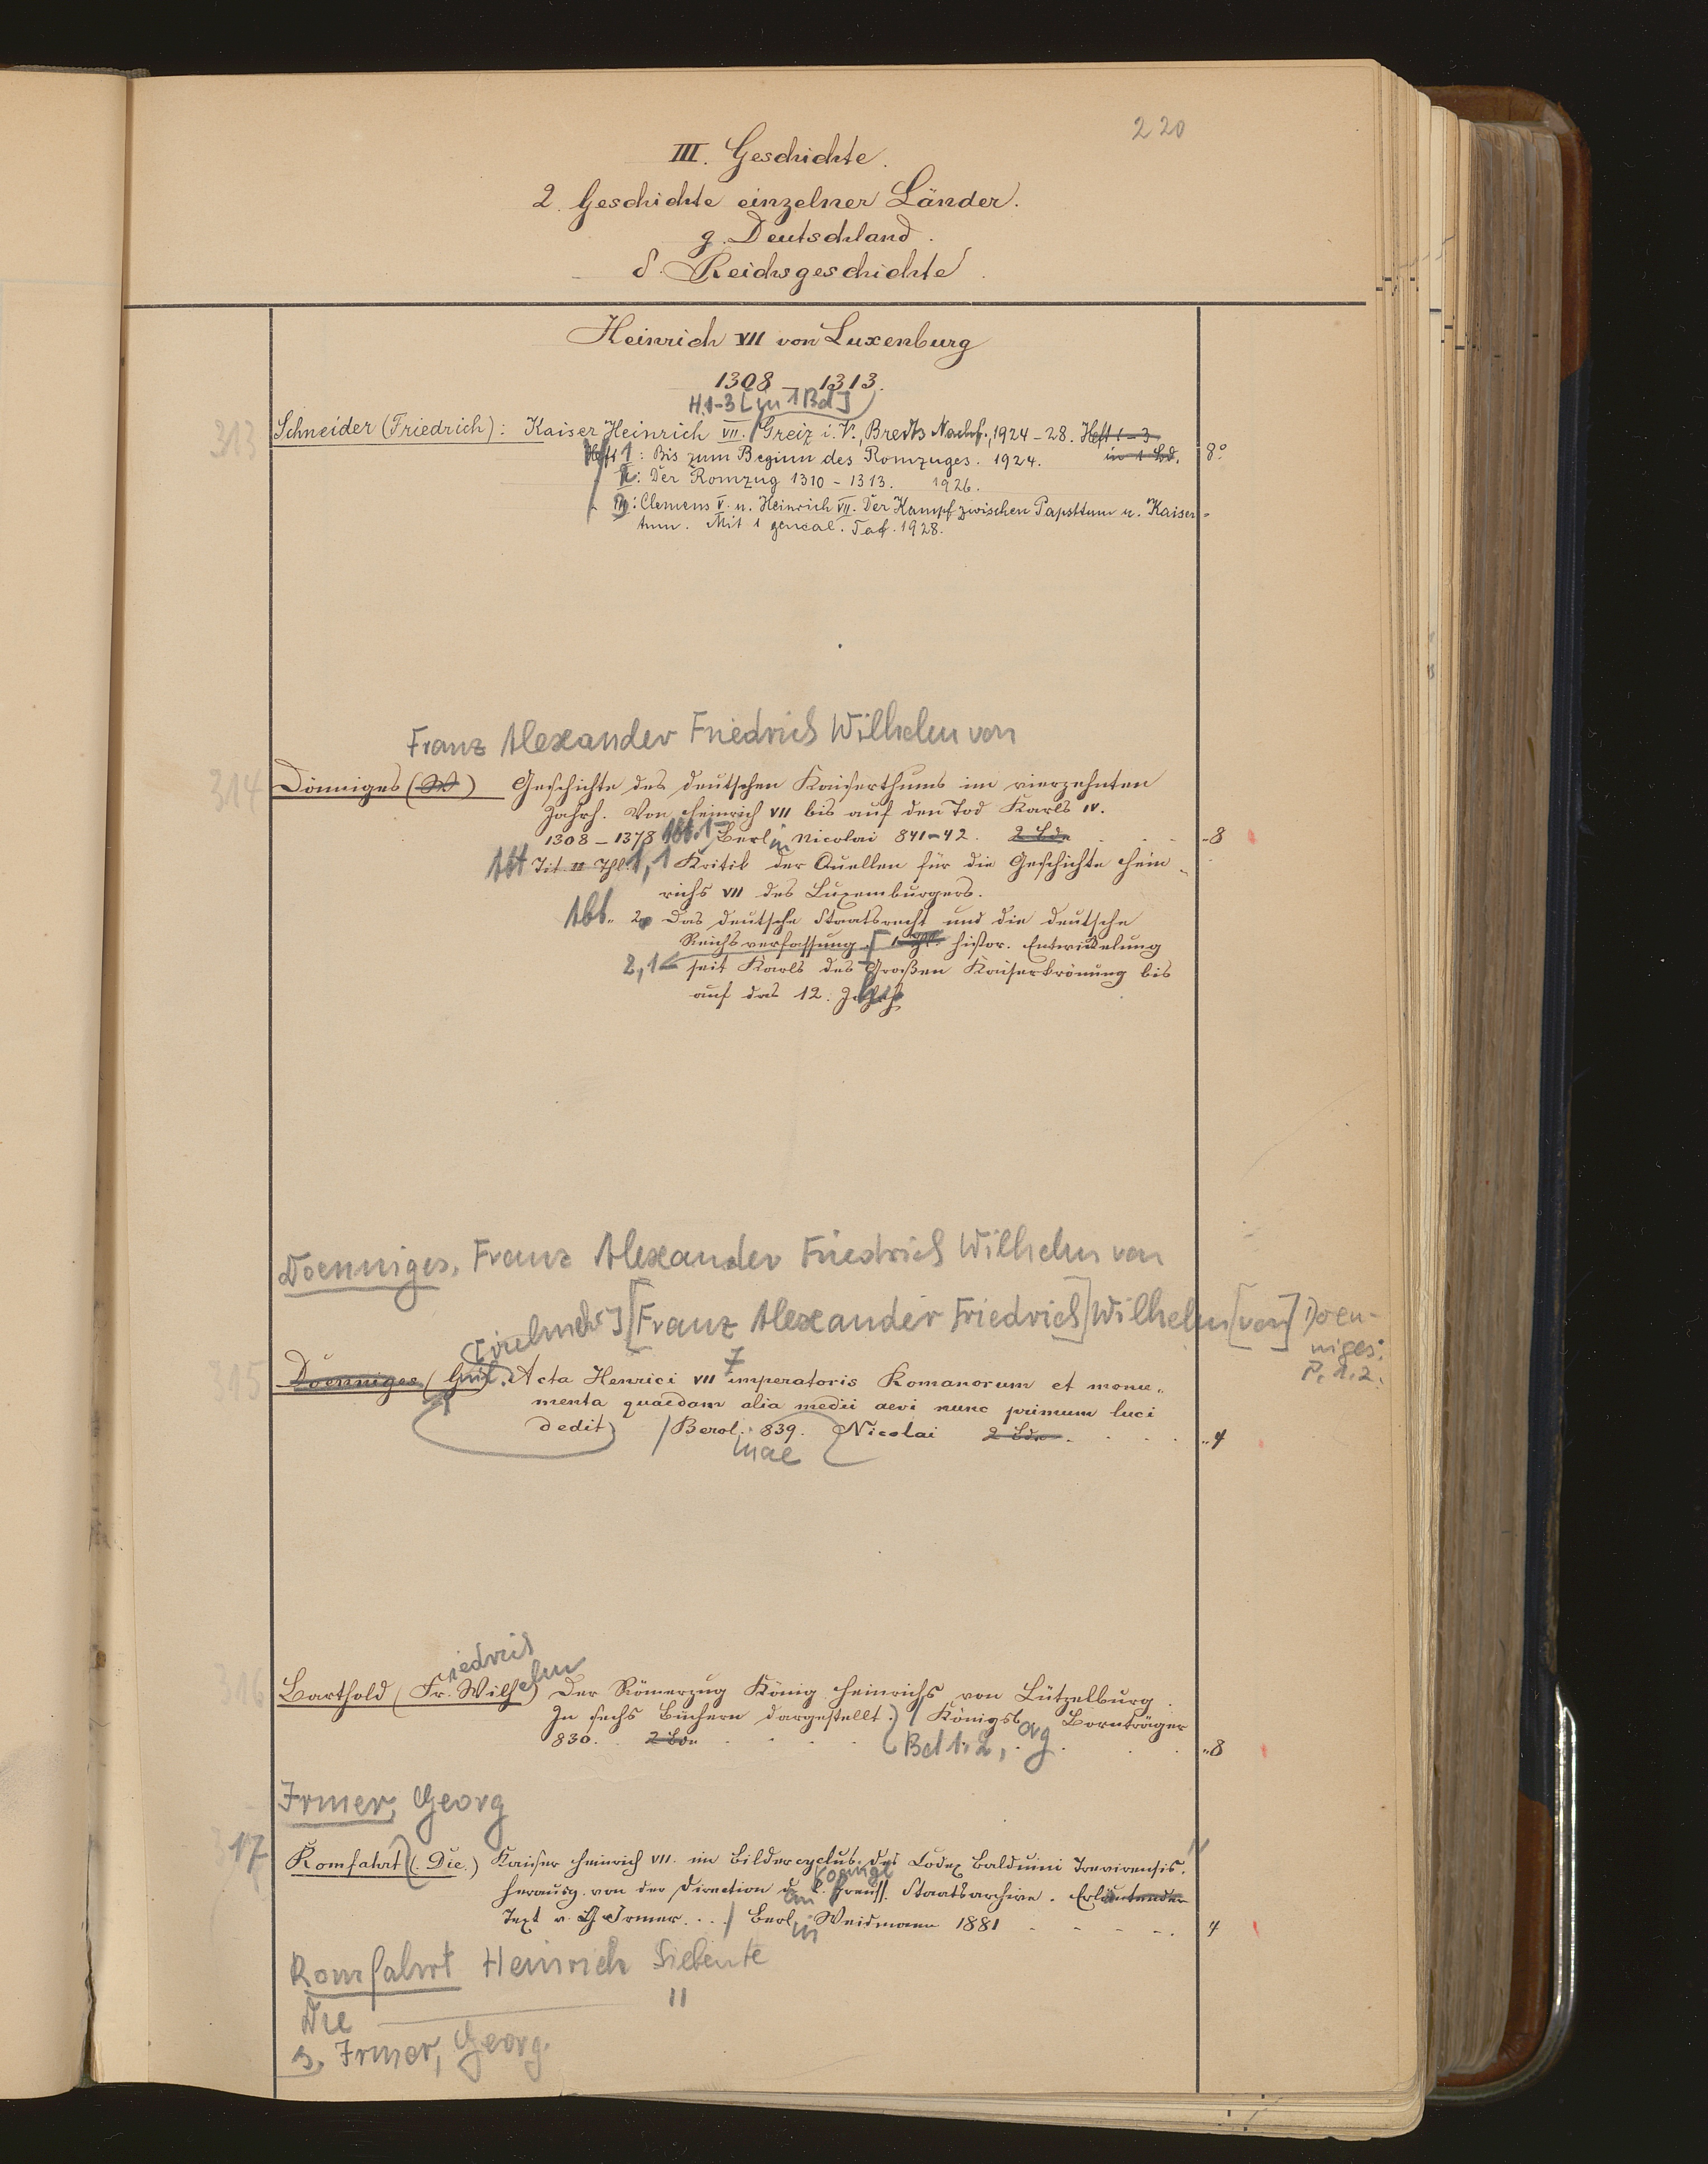 220
III. Geschichte.
2. Geschichte einzelner Länder.
g. Deutschland.
δ. Reichsgeschichte.
Heinrich VII von Luxenburg
1308 – 1313.
H.1-3 [in 1 Bd]
313 Schneider (Friedrich): Kaiser Heinrich VII. / Greiz i. V., Bredts Nachf., 1924–28. Heft 1–3
Heft 1: Bis zum Beginn des Romzuges. 1924. in 1 Bd. 8°
II: Der Romzug 1310–1313. 1926.
III: Clemens V. u. Heinrich VII. Der Kampf zwischen Papsttum u. Kaiser-
tum. Mit 1 geneal. Taf. 1928.
Franz Alexander Friedrich Wilhelm von
314 Dönniges (W) Geschichte des deutschen Kaiserthums im vierzehnten
Jahrh. Von Heinrich VII bis auf den Tod Karls IV.
1308–1378 Abt. 1 Berlin Nicolai 841–42. 2 Bde „8
Abt Tit II Thl. 1,1 Kritik der Quellen für die Geschichte Hein„
richs VII des Luxemburgers.
Abt. 2, Das deutsche Staatsrecht und die deutsche
Reichsverfassung. histor. Entwickelung
2,1 seit Karls des Großen Kaiserkrönung bis
auf das 12. Jahrh.
Doenniges, Franz Alexander Friedrich Wilhelm von
[Franz Alexander Friedrich] Wilhelm [von] Doen-
niges.
P. 1.2.
315 Doenniges (Guil. Acta Henrici VII imperatoris Romanorum et monu„
menta quaedam alia medii aevi nunc primum luci
dedit) / Berol. 839. Nicolai 2 Bde. „4
inae
iedrich
elm
316 Barthold (Fr. Wilh) Der Römerzug König Heinrichs von Lützelburg.
In sechs Büchern dargestellt.) / Königsb. Bornträger
830. 2 Bde Bd 1. 2, . org „8
Irmer, Georg
317 Romfahrt (. Die.) Kaiser Heinrich VII. im Bildercyclus des Codex Balduini Trevirensis.
herausg. von der Direction d. K. Preuss. Staatsarchive. Erläutender
Text v. G Irmer. . . / Berlin Weidmann 1881 4
Romfahrt Heinrich Siebente
Die ——— "
s. Irmer, Georg.